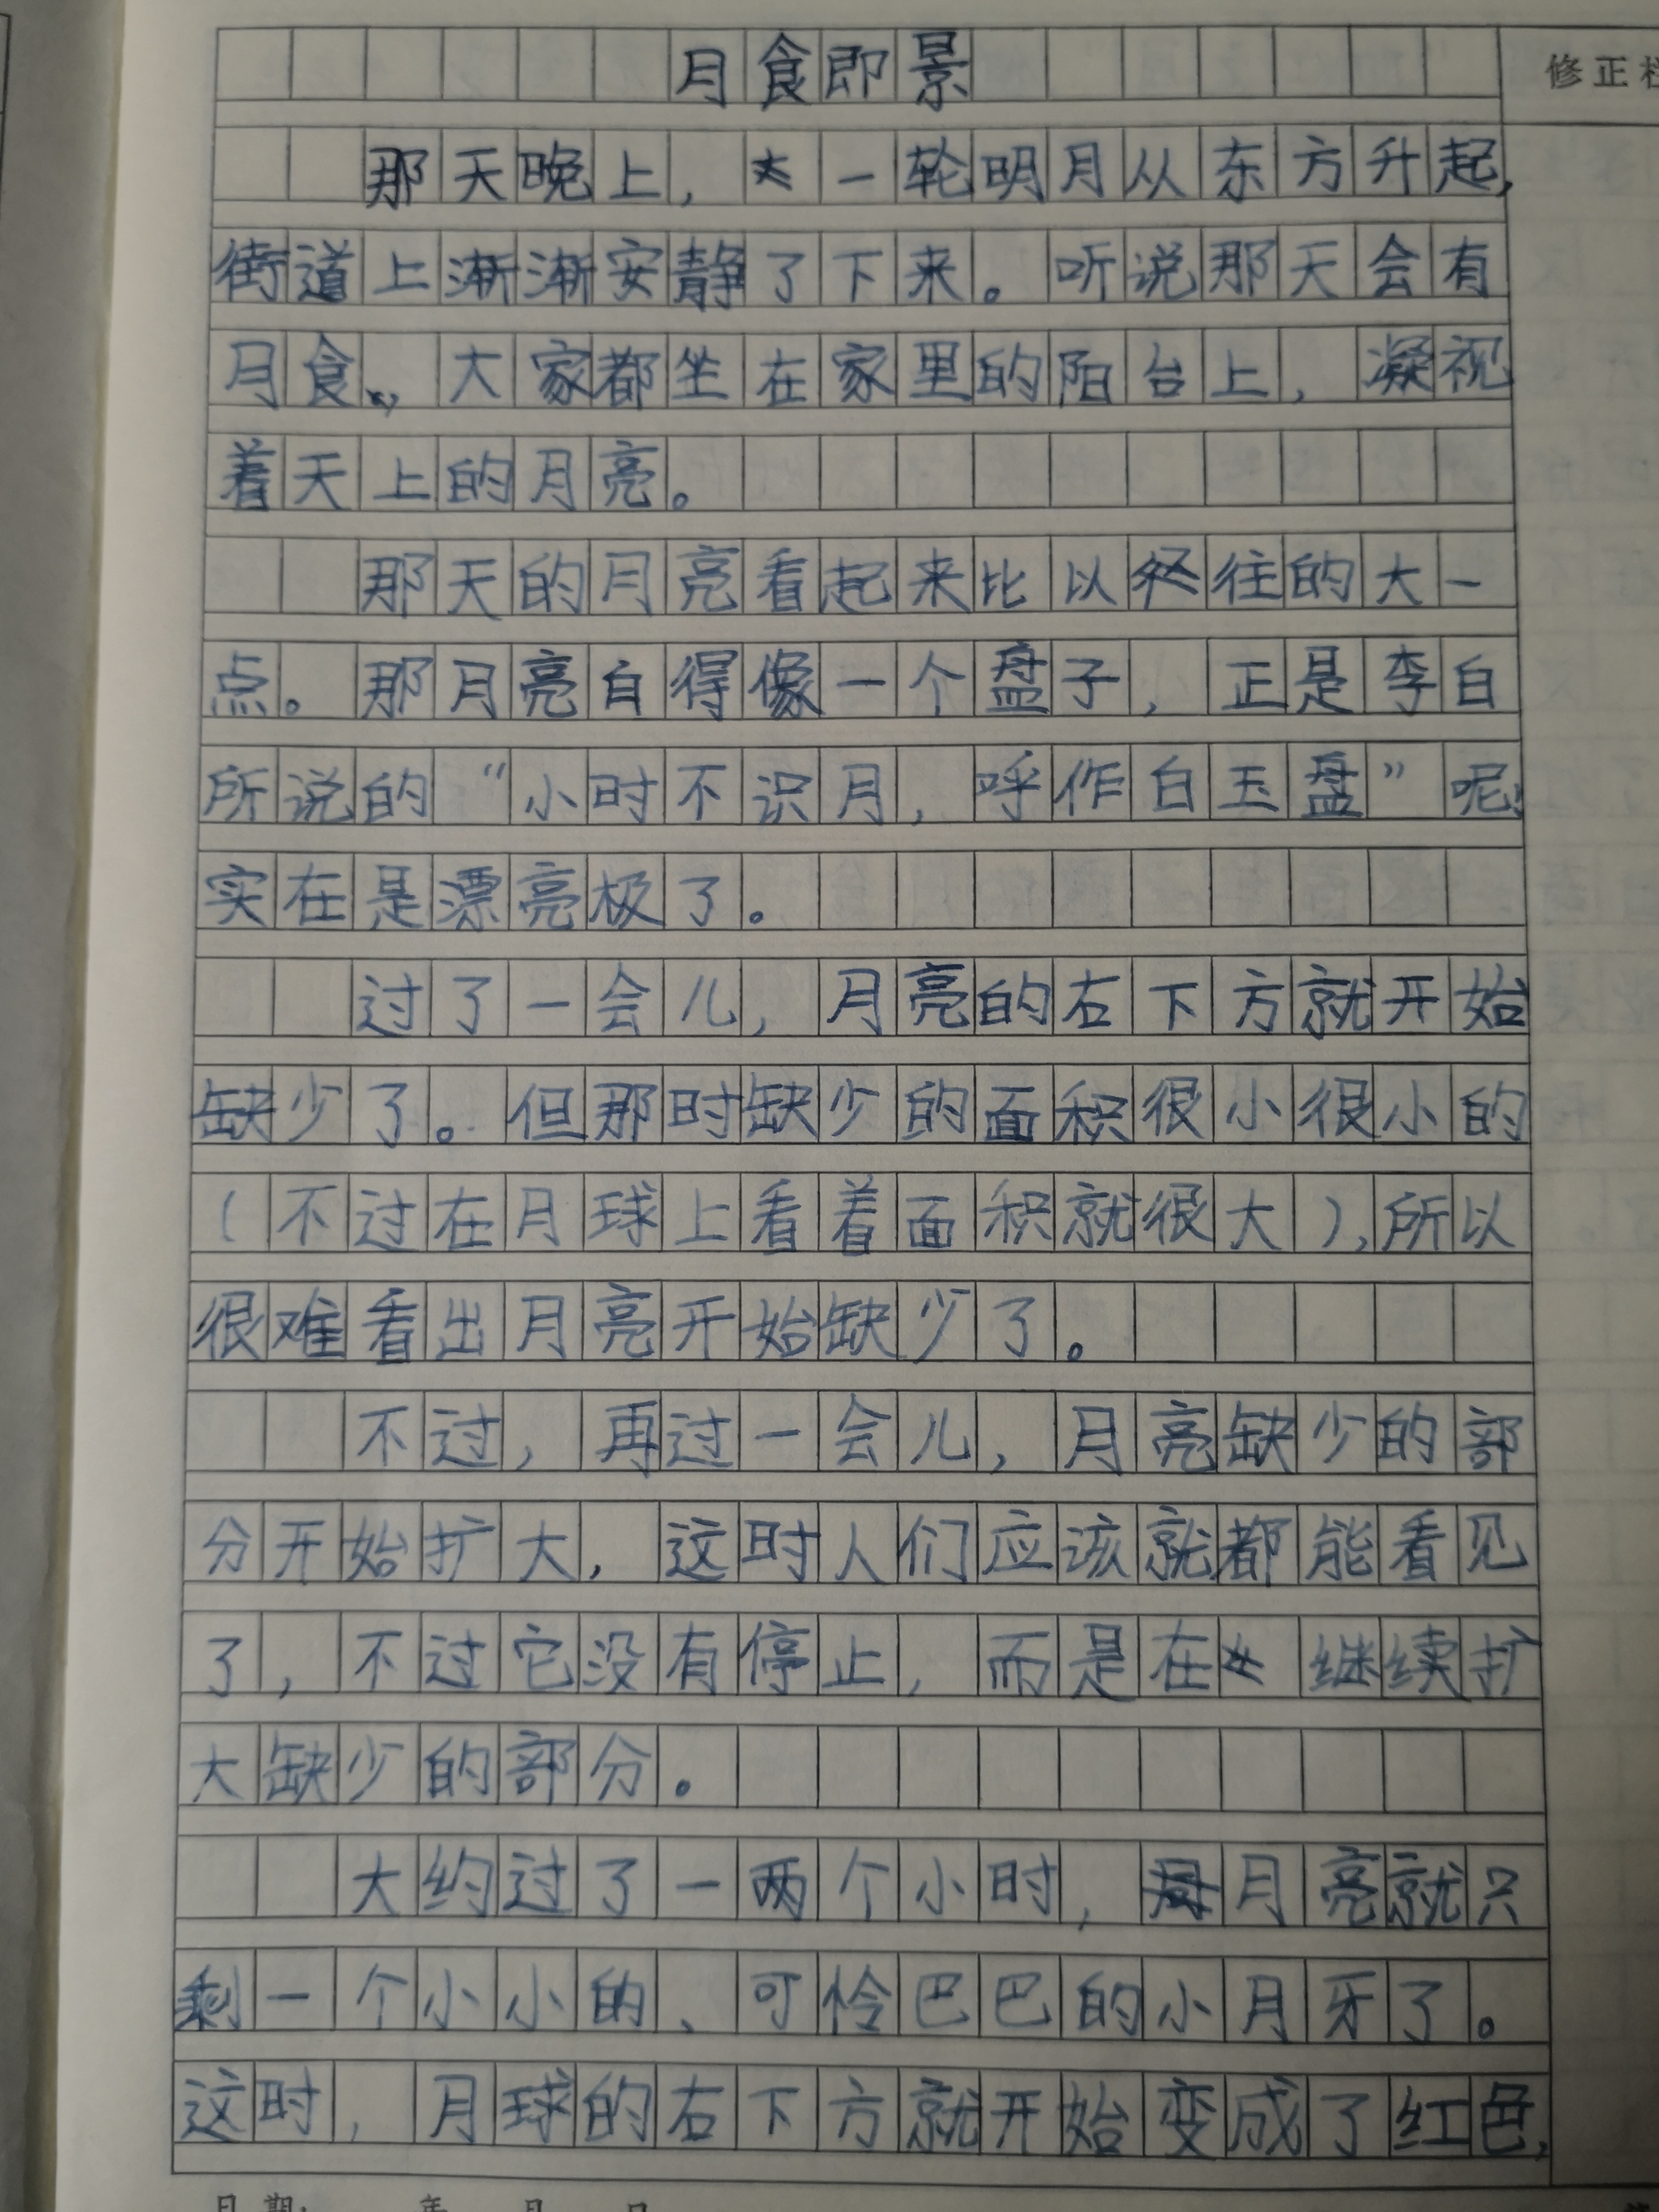 月食即景
修正栏
那天晚上，一轮明月从东方升起，
街道上渐渐安静了下来。听说那天会有
月食，大家都坐在家里的阳台上，凝视
着天上的月亮。
那天的月亮看起来比以往的大一
点。那月亮白得像一个盘子，正是李白
所说的“小时不识月，呼作白玉盘”呢！
实在是漂亮极了。
过了一会儿，月亮的右下方就开始
缺少了。但那时缺少的面积很小很小的
（不过在月球上看着面积就很大），所以
很难看出月亮开始缺少了。
不过，再过一会儿，月亮缺少的部
分开始扩大，这时人们应该就都能看见
了，不过它没有停止，而是在继续扩
大缺少的部分。
大约过了一两个小时，月亮就只
剩一个小小的、可怜巴巴的小月牙了。
这时，月球的右下方就开始变成了红色，
日期： 年 月 日